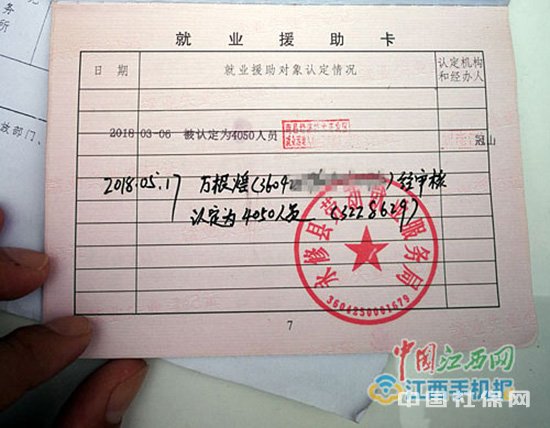 就业援助卡
日期 就业援助对象认定情况 认定机构和经办人
2018-03-06 被认定为4050人员 冠山
2018.05.17 万根煌(36042 )经审核
认定为4050人员 (3228629)
永修县劳动就业服务局
3604250001679
7
中国江西网
江西手机报
中国社保网
务
所
放部门、